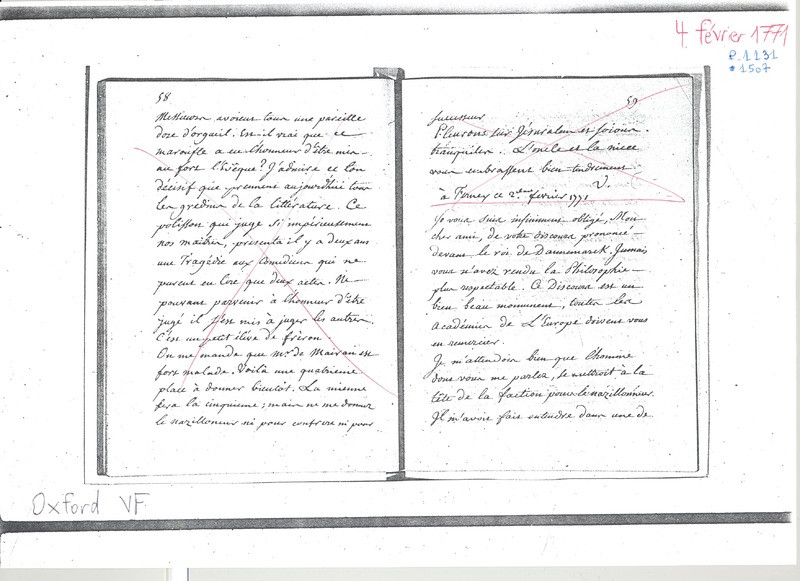 4 février 1771
P. 1131
*1507
58
Messieurs avoient tous une pareille
doze d'orgueil. Est-il vrai que ce
maroufle a eu l'honneur d'être mis
au fort l'Evêque? J'admire ce ton
décisif que prennent aujourd'hui tous
les gredins de la littérature. Ce
polisson qui juge si impérieusement
nos maitres, presenta il y a deux ans
une Tragédie aux Comédiens qui ne
purent en lire que deux actes. Ne
pouvant parvenir à l'honneur d'être
jugé il s'est mis à juger les autres.
C'est un petit élève de fréron.
On me mande que Mr. de Mairan est
fort malade. Voilà une quatrieme
place à donner bientôt. La mienne
fera la cinquieme; mais ne me donnez
le nazillonneur ni pour confrere ni pour
59
successeur
Pleurons sur Jérusalem et soions
tranquiles. L'oncle et la niece
vous embrassent bien tendrement
V.
à Ferney ce 2 février 1771
Je vous suis infiniment obligé, Mon
cher ami, de votre discours prononcé
devant le roi de Dannemarck. Jamais
vous n'avez rendu la Philosophie
plus respectable. Ce Discours est un
bien beau monument, toutes les
académies de L'Europe doivent vous
en remercier.
Je m'attendois bien que l'homme
dont vous me parlez, se mettroit à la
tête de la faction pour le nazillonneur.
Il m'avoit fait entendre dans une de
Oxford VF